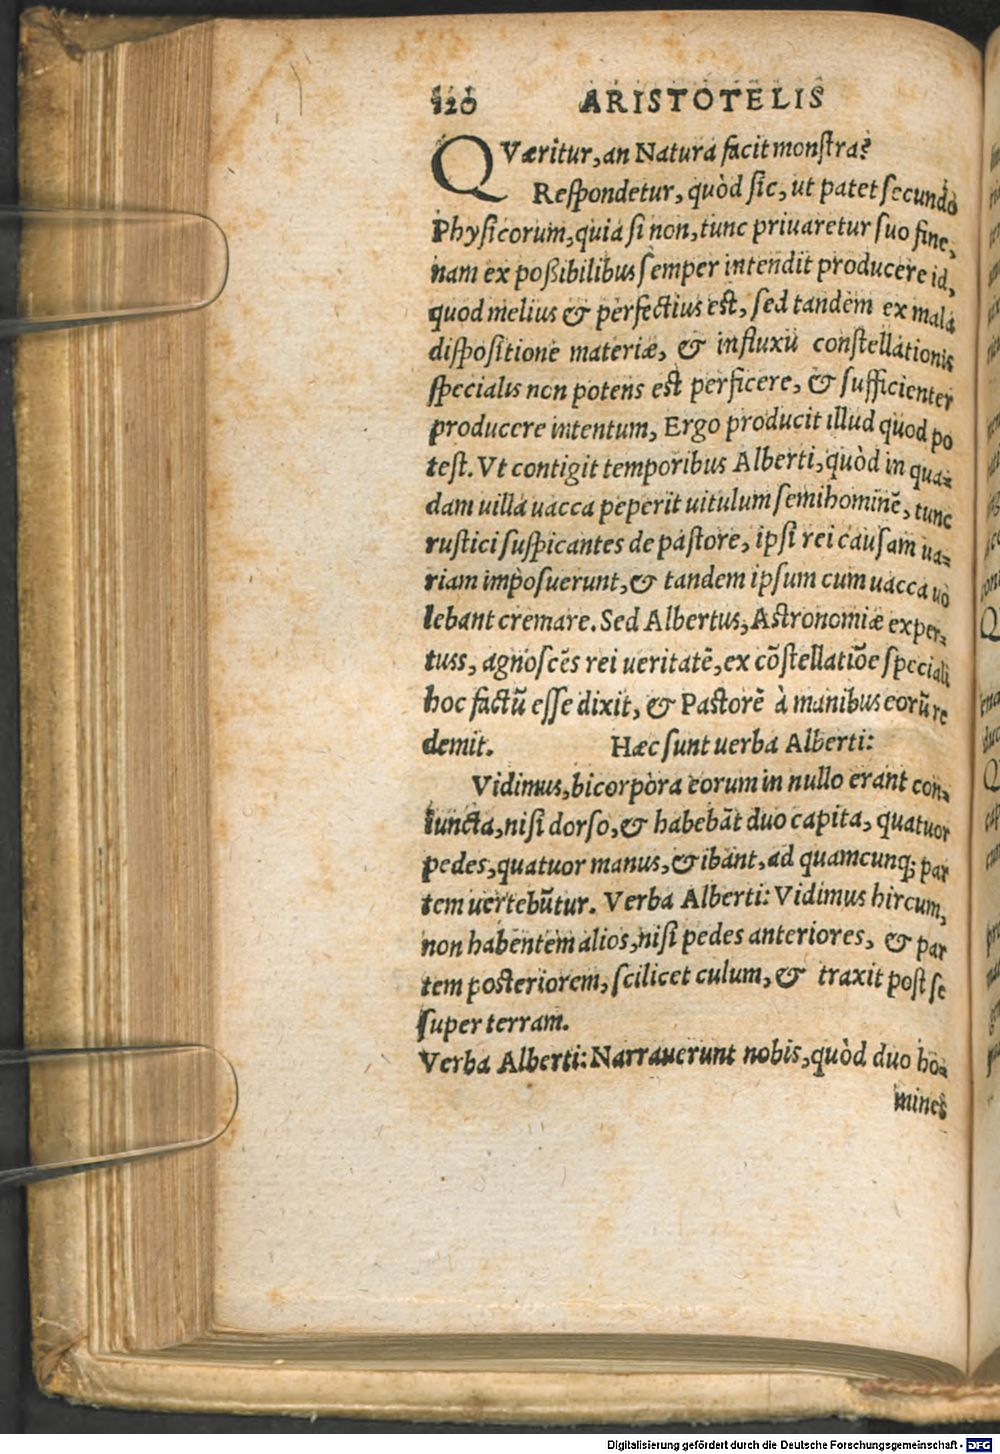 120 ARISTOTELIS
QVæritur, an Natura facit monſtra?
Reſpondetur, quòd ſic, ut patet ſecundo
Phyſicorum, quia ſi non, tunc priuaretur ſuo fine,
nam ex poßibilibus ſemper intendit producere id,
quod melius & perfectius eſt, ſed tandem ex mala
diſpoſitione materiæ, & influxũ conſtellationis
ſpecialis non potens eſt perficere, & ſufficienter
producere intentum, Ergo producit illud quod po
teſt. Vt contigit temporibus Alberti, quòd in qua⸗
dam uilla uacca peperit uitulum ſemihominẽ, tunc
ruſtici ſuſpicantes de paſtore, ipſi rei cauſam ua⸗
riam impoſuerunt, & tandem ipſum cum uacca uo
lebant cremare. Sed Albertus, Aſtronomiæ exper⸗
tuss, agnoſcẽs rei ueritatẽ, ex cõſtellatiõe ſpeciali
hoc factũ eſſe dixit, & Paſtorẽ à manibus eorũ re
demit. Hæc ſunt uerba Alberti:
Vidimus, bicorpora eorum in nullo erant con⸗
iuncta, niſi dorſo, & habebãt duo capita, quatuor
pedes, quatuor manus, & ibant, ad quamcunq; par
tem uertebũtur. Verba Alberti: Vidimus hircum,
non habentem alios, niſi pedes anteriores, & par
tem poſteriorem, ſcilicet culum, & traxit poſt ſe
ſuper terram.
Verba Alberti: Narrauerunt nobis, quòd duo ho⸗
mines
Digitalisierung gefördert durch die Deutsche Forschungsgemeinschaft - DFG